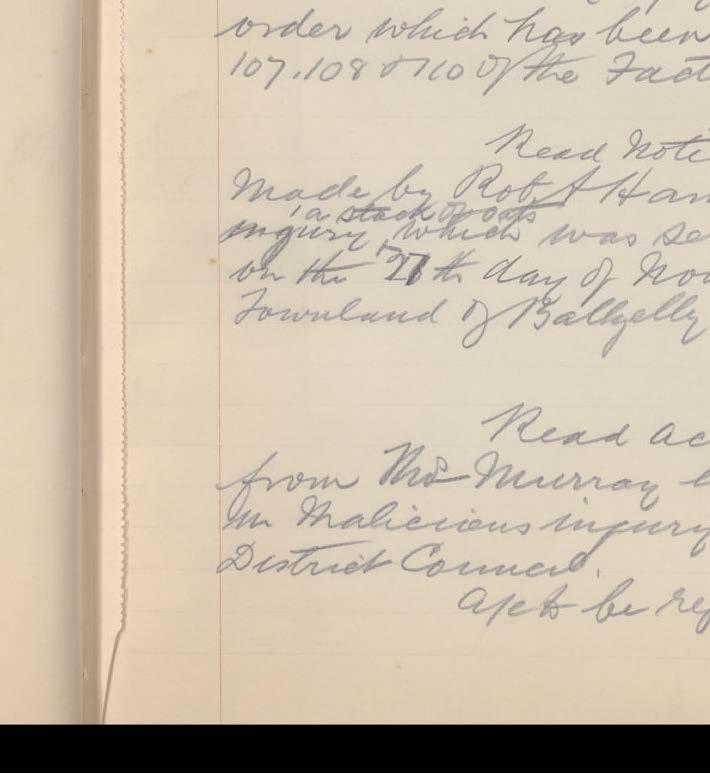 order which has been
107.108 & 110 of the Fact
Read Noti
Made by Robt Han
a stack of oats
injury, which was se
on the 27th day of Nov
Townland of Ballyelly
Read ac
from Thos Murray
in Malicious injury
District Council.
Apct to be rep